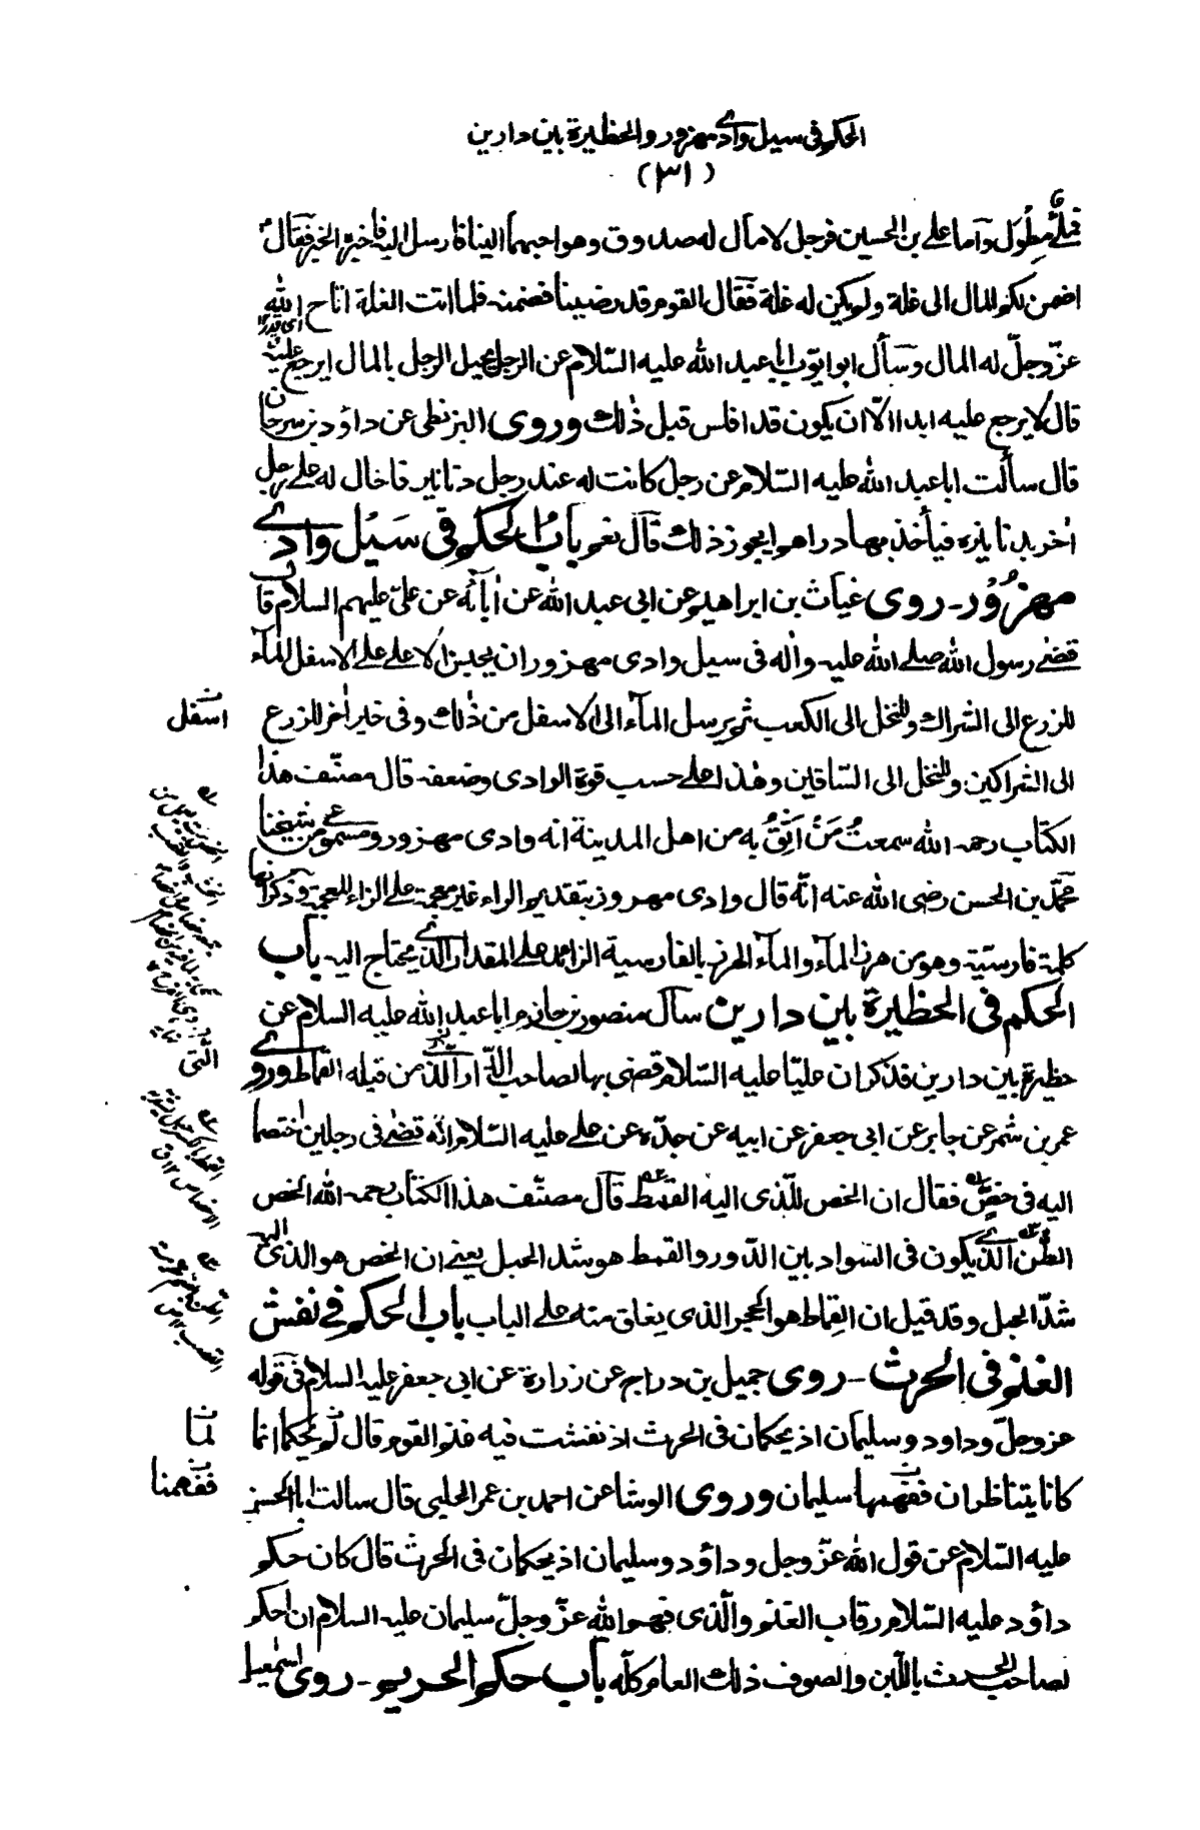 الحكم فى سيل وادى مهزور والحظيرة بين دارين
(٣١)
فملئ مطول واما على بن الحسين فرجل لا مال له صدوق وهو احبهما الينا فارسل اليه فاخبره الخبر فقال
اضمن لكم المال الى غلة ولم يكن له غلة فقال القوم قد رضينا فضمنه فلما اتت الغلة اتاح الله
اى قدر
عزّ وجلّ له المال وسأل ابو ايوب ابا عبد الله عليه السّلام عن الرجل يحيل الرجل بالمال ايرجع عليه
قال لا يرجع عليه ابدا الّا ان يكون قد افلس قبل ذٰلك وروى البزنطى عن داؤد بن سرحان
قال سألت ابا عبد الله عليه السّلام عن رجل كانت له عند رجل دنانير فاحال له على رجل
اٰخر بدنانيره فيأخذ بها دراهم ايجوز ذلك قال نعم باب الحكم فى سَيْل وادى
مهزُوْر - روى غياث بن ابراهيم عن ابى عبد الله عن اٰبائه عن علىّ عليهم السلام قال
قضى رسول الله صلى الله عليه واٰله فى سيل وادى مهزور ان يحبس الاعلى على الاسفل الماء
للزرع الى الشراك وللنخل الى الكعب ثم يرسل الماء الى الاسفل من ذٰلك وفى خبر اٰخر للزرع
اسفل
الى الشراكين وللنخل الى السّاقين وهٰذا على حسب قوة الوادى وضعفه قال مصنّف هذا
الكتاب رحمه الله سمعتُ مَنْ اَثِقُ به من اهل المدينة انه وادى مهزور ومسموعى من شيخنا
محمّد بن الحسن رضى الله عنه انّه قال وادى مهروز بتقديم الراء غير معجمة على الزاء المعجمة وذكر انها
كلمة فارسيّة وهو من هرز الماء والماء الهرز بالفارسية الزائد على المقدار الّذى يحتاج اليه باب
الحكم فى الحظيرة بين دارين سأل منصور بن حازم ابا عبد الله عليه السلام عن
حظيرة بين دارين فذكر ان عليّا عليه السّلام قضى بها لصاحب الدّار الّذى من قبله القماط وروى
الّتى
عمر بن شمر عن جابر عن ابى جعفر عن ابيه عن جدّه عن على عليه السّلام انّه قضى فى رجلين اختصما
اليه فى خصّ فقال ان الخص للّذى اليه القمط قال مصنّف هذا الكتاب رحمه الله الخص
الطُّنّ الّذى يكون فى السّواد بين الدّور والقمط هو شد الحبل يعنى ان الخص هو الذى اليه
شدّ الحبل وقد قيل ان القِماط هو الحجر الذى يغلق منه على الباب باب الحكم فى نفش
الغنم فى الحرث - روى جميل بن دراج عن زرارة عن ابى جعفر عليه السلام فى قوله
عز وجلّ وداود وسليمان اذ يحكمان فى الحرث اذ نفشت فيه غنم القوم قال لم يحكما انما
لمّا
كانا يتناظران ففهمها سليمان وروى الوشا عن احمد بن عمر الحلبى قال سالت ابا الحسن
ففهمنا
عليه السّلام عن قول الله عزّ وجل وداؤد وسليمان اذ يحكمان فى الحرث قال كان حكم
داؤد عليه السّلام رقاب الغنم والّذى فهم الله عزّ وجلّ سليمان عليه السلام ان احكم
لصاحب الحرث باللّبن والصوف ذلك العام كلّه باب حكم الحريم - روى اسمٰعيل